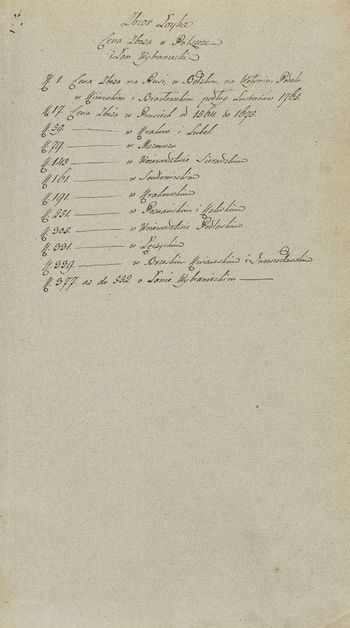 Zbior Łoyka
Cena Zboza w Polszcze
i Łan Wybraniecki
N. 1. Cena Zboza na Rusi, w Bełzkim, na Wołoniu, Podolu
w Kijowskim i Bracławskim podług Lustracÿów 1765.
N. 17. Cena Zboża w Prusiech od 1564 do 1675.
N. 39. ——— w Krakow. i Lubel.
N. 79. ——— w Mazowszu
N. 113. ——— w Woiewodztwie Sieradzkim
N. 161. ——— w Sendomirskim
N. 191. ——— w Krakowskim
N. 221. ——— w Poznańskim i Kaliskim
N. 305. ——— w Woiewodztwie Podlaskim
N. 331. ——— w Łęczyckim
N. 339. ——— w Brzeskim Kujawskim i Inowrocławskim
N. 377. az do 532 o Łanie Wybranieckim ———